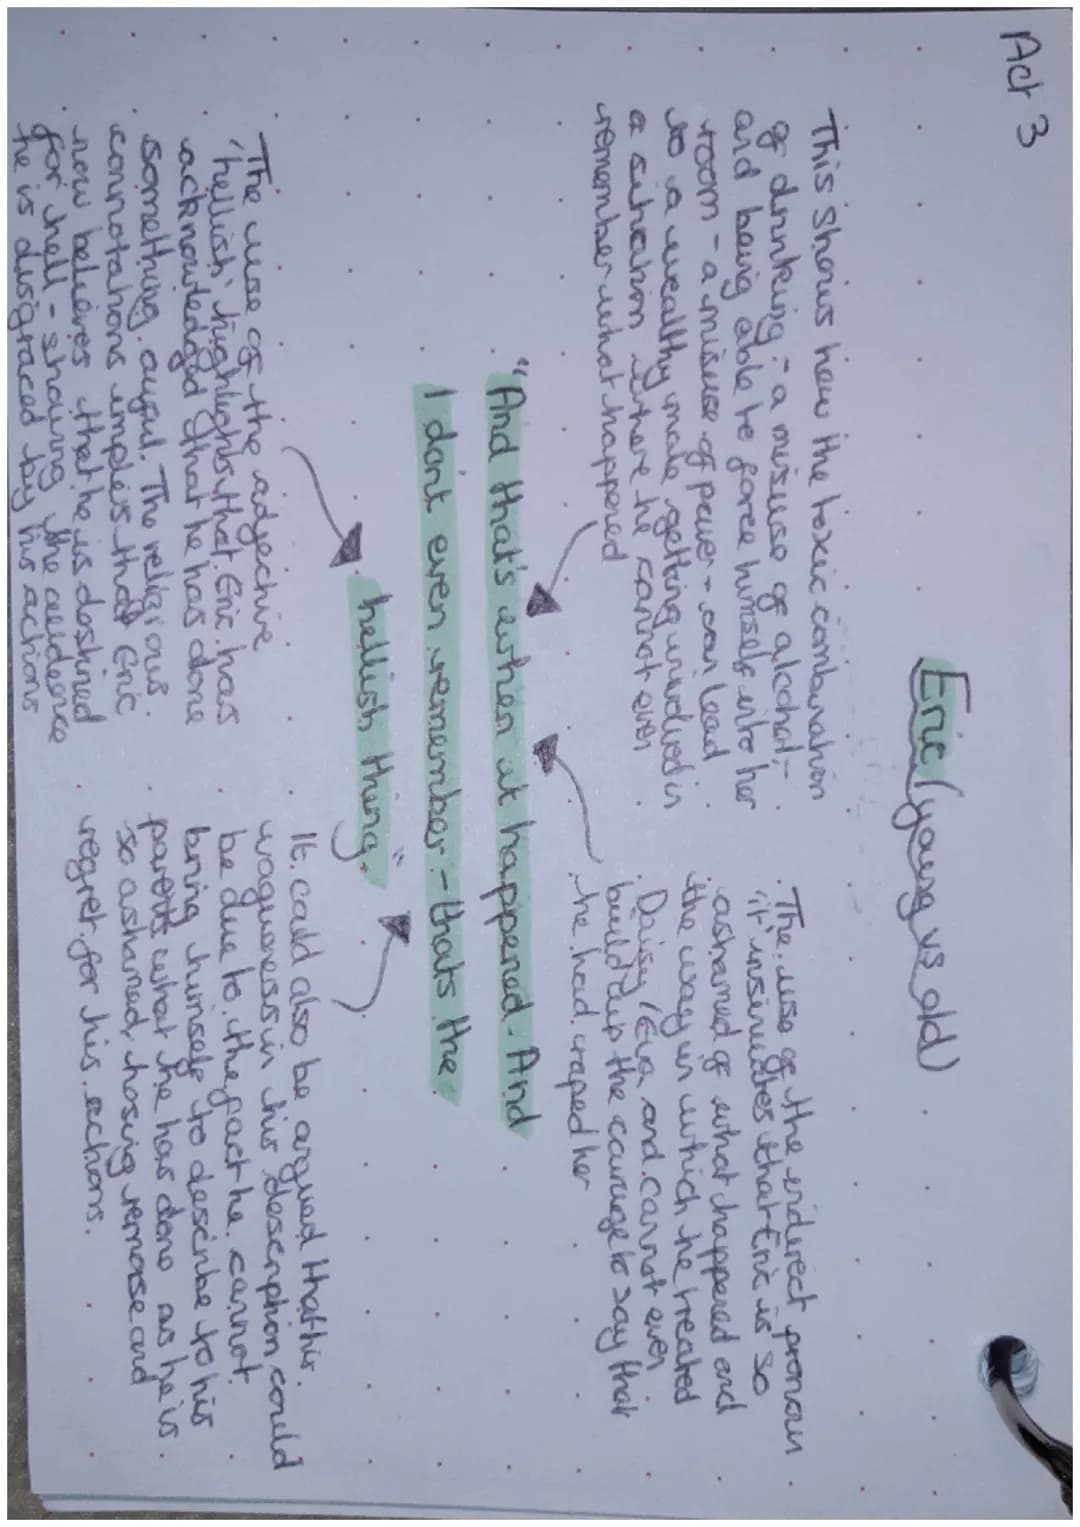 Act 3
Eric (young vs old)
This shows how the toxic combination
of drinking - a misuse of alcohol -
and being able to force himself into her
room - a misuse of power - can lead
to a wealthy male getting involved in
a situation where he cannot even
remember what happened
The use of the indirect pronoun
'it' insinuates that Eric is so
ashamed of what happened and
the way in which he treated
Daisy/Eva and cannot even
build up the courage to say that
he had raped her
"And that's when it happened. And
I don't even remember - thats the
hellish thing."
The use of the adjective
'hellish' highlights that Eric has
acknowledged that he has done
something awful. The religious
connotations implies that Eric
now believes that he is destined
for hell - showing the audience
he is disgraced by his actions
It could also be argued that his
vagueness in his description could
be due to the fact he cannot
bring himself to describe to his
parents what he has done as he is
so ashamed, hosing remorse and
regret for his actions.